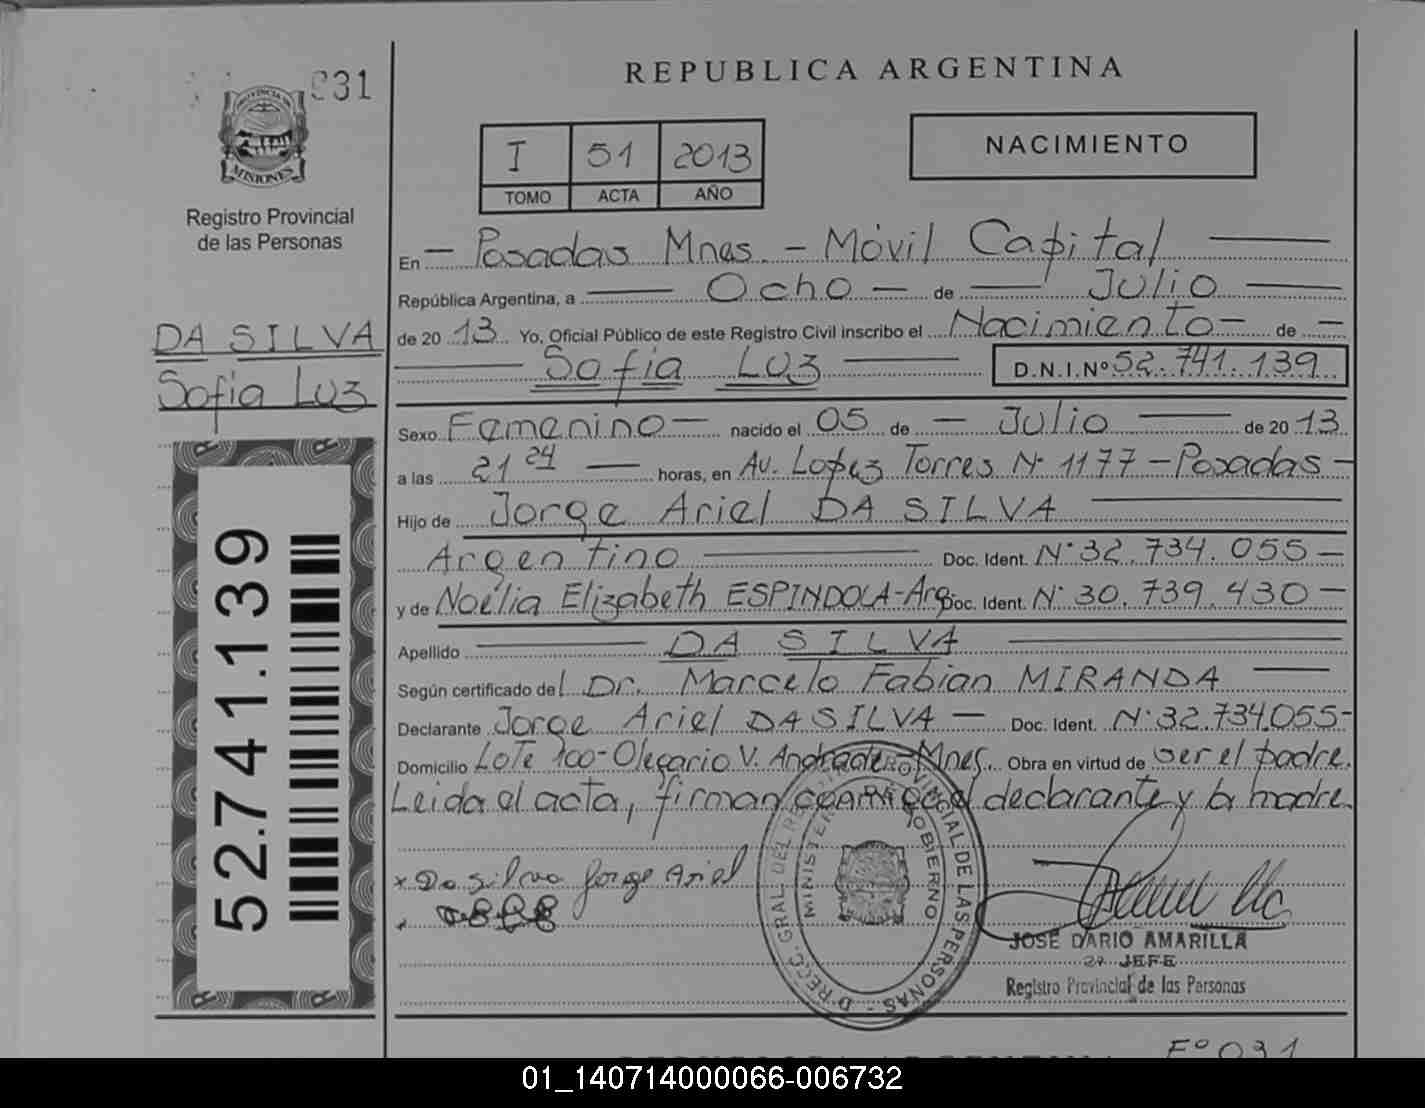 031
PROVINCIA DE
MISIONES
Registro Provincial
de las Personas
DA SILVA
Sofia Luz
52.741.139
REPUBLICA ARGENTINA
I 51 2013
TOMO ACTA AÑO
NACIMIENTO
En — Posadas Mnes. - Móvil Capital
República Argentina, a Ocho — de Julio
de 20 13 Yo, Oficial Público de este Registro Civil inscribo el Nacimiento — de —
Sofia Luz D.N.I.Nº 52.741.139
Sexo Femenino — nacido el 05 de — Julio de 20 13
a las 21 24 — horas, en Av. Lopez Torres Nº 1177 - Posadas -
Hijo de Jorge Ariel DA SILVA
Argentino Doc. Ident. Nº 32.734.055 —
y de Noelia Elizabeth ESPINDOLA - Arg. Doc. Ident. Nº 30.739.430 —
Apellido DA SILVA
Según certificado del Dr. Marcelo Fabian MIRANDA
Declarante Jorge Ariel DA SILVA — Doc. Ident. Nº 32.734.055-
Domicilio Lote 100 - Olegario V. Andrade - Mnes. Obra en virtud de ser el padre.
Leida el acta, firman conmigo el declarante y la madre.
x Da Silva Jorge Ariel
DIRECC. GRAL. DEL REGISTRO PROVINCIAL DE LAS PERSONAS
MINISTERIO DE GOBIERNO
JOSE DARIO AMARILLA
2º JEFE
Registro Provincial de las Personas
Fº 031
01_140714000066-006732